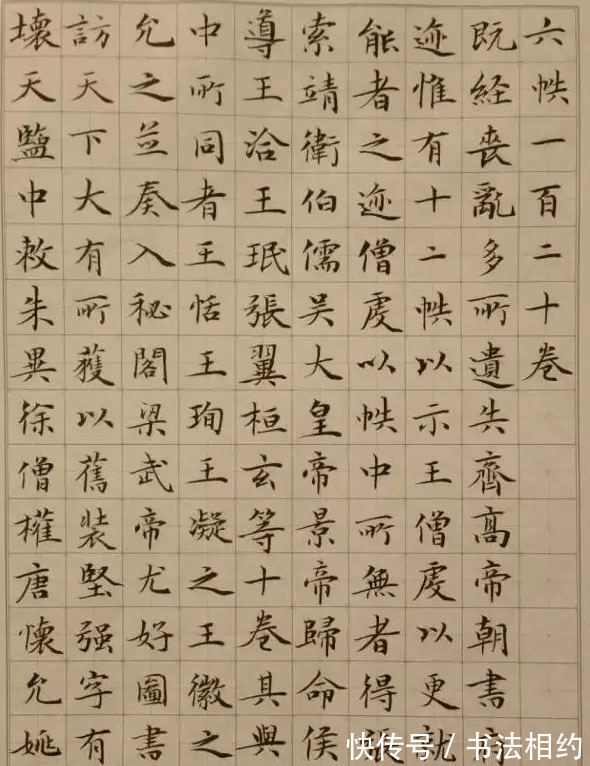 六帙一百二十卷
既経喪亂多所遺失齊高帝朝書
迹惟有十二帙以示王僧虔以更就
能者之迹僧虔以帙中所無者得張
索靖衛伯儒吴大皇帝景帝歸命侯
導王洽王珉張翼桓玄等十卷其與
中所同者王恬王珣王凝之王徽之
允之並奏入秘閣梁武帝尤好圖書
訪天下大有所獲以舊装堅强字有
壞天監中敕朱異徐僧權唐懷允姚
快传号/书法相约